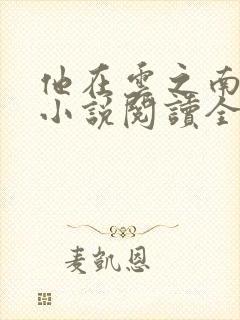 他在雲之南
小說閱讀全
麦凱恩